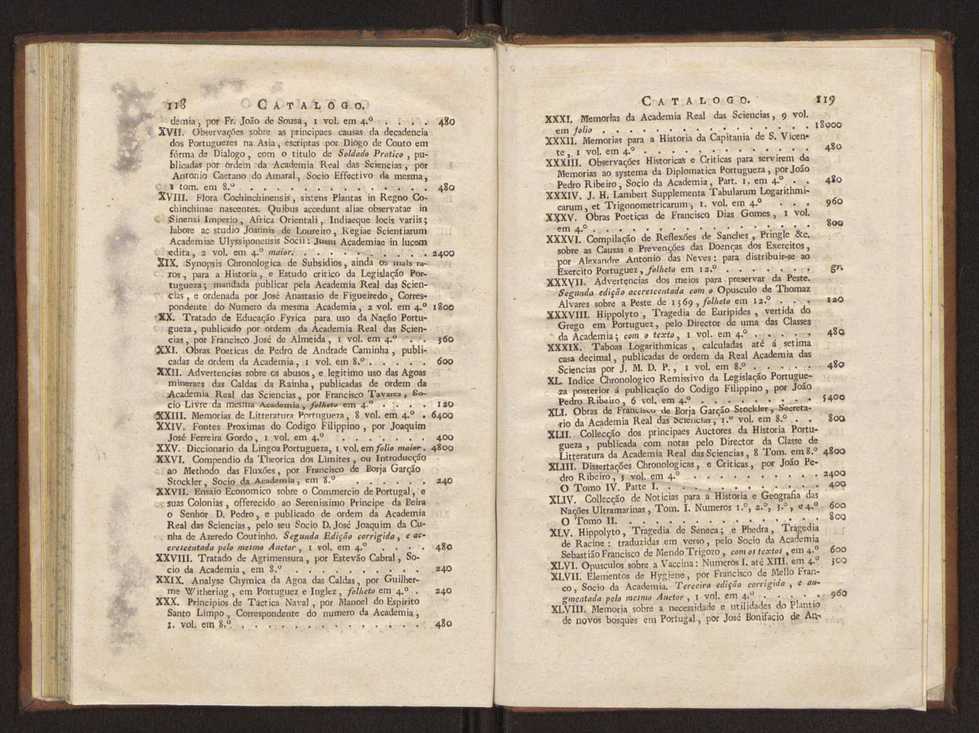 118 CATALOGO.
demia, por Fr. João de Sousa, 1 vol. em 4.º . . . . 480
XVII. Observações sobre as principaes causas da decadencia
dos Portuguezes na Asia, escriptas por Diogo de Couto em
fórma de Dialogo, com o titulo de Soldado Pratico, pu-
blicadas por ordem da Academia Real das Sciencias, por
Antonio Caetano do Amaral, Socio Effectivo da mesma,
1 tom. em 8.º . . . . . . . . . . . . . . 480
XVIII. Flora Cochinchinensis, sistens Plantas in Regno Co-
chinchinae nascentes. Quibus accedunt aliae observatae in
Sinensi Imperio, Africa Orientali, Indiaeque locis variis;
labore ac studio Joannis de Loureiro, Regiae Scientiarum
Academiae Ulyssiponensis Socii: Jussu Academiae in lucem
edita, 2 vol. em 4.º maior. . . . . . . . . . 2400
XIX. Synopsis Chronologica de Subsidios, ainda os mais ra-
ros, para a Historia, e Estudo critico da Legislação Por-
tugueza; mandada publicar pela Academia Real das Scien-
cias, e ordenada por José Anastasio de Figueiredo, Corres-
pondente do Numero da mesma Academia, 2 vol. em 4.º 1800
XX. Tratado de Educação Fysica para uso da Nação Portu-
gueza, publicado por ordem da Academia Real das Scien-
cias, por Francisco José de Almeida, 1 vol. em 4.º . . 360
XXI. Obras Poeticas de Pedro de Andrade Caminha, publi-
cadas de ordem da Academia, 1 vol. em 8.º . . . . . 600
XXII. Advertencias sobre os abusos, e legitimo uso das Agoas
mineraes das Caldas da Rainha, publicadas de ordem da
Academia Real das Sciencias, por Francisco Tavares, So-
cio Livre da mesma Academia, folheto em 4.º . . . . 120
XXIII. Memorias de Litteratura Portugueza, 8 vol. em 4.º . 6400
XXIV. Fontes Proximas do Codigo Filippino, por Joaquim
José Ferreira Gordo, 1 vol. em 4.º . . . . . . . 400
XXV. Diccionario da Lingoa Portugueza, 1 vol. em folio maior. 4800
XXVI. Compendio da Theorica dos Limites, ou Introducção
ao Methodo das Fluxões, por Francisco de Borja Garção
Stockler, Socio da Academia, em 8.º . . . . . . 240
XXVII. Ensaio Economico sobre o Commercio de Portugal, e
suas Colonias, offerecido ao Serenissimo Principe da Beira
o Senhor D. Pedro, e publicado de ordem da Academia
Real das Sciencias, pelo seu Socio D. José Joaquim da Cu-
nha de Azeredo Coutinho. Segunda Edição corrigida, e ac-
crescentada pelo mesmo Auctor, 1 vol. em 4.º . . . . 480
XXVIII. Tratado de Agrimensura, por Estevão Cabral, So-
cio da Academia, em 8.º . . . . . . . . . . 240
XXIX. Analyse Chymica da Agoa das Caldas, por Guilher-
me Withering, em Portuguez e Inglez, folheto em 4.º . 240
XXX. Principios de Tactica Naval, por Manoel do Espirito
Santo Limpo, Correspondente do numero da Academia,
1. vol. em 8.º . . . . . . . . . . . . . . 480
CATALOGO. 119
XXXI. Memorias da Academia Real das Sciencias, 9 vol.
em folio . . . . . . . . . . . . . . . 18000
XXXII. Memorias para a Historia da Capitania de S. Vicen-
te, 1 vol. em 4.º . . . . . . . . . . . . . 480
XXXIII. Observações Historicas e Criticas para servirem de
Memorias ao systema da Diplomatica Portugueza, por João
Pedro Ribeiro, Socio da Academia, Part. 1. em 4.º . . 480
XXXIV. J. H. Lambert Supplementa Tabularum Logarithmi-
carum, et Trigonometricarum, 1. vol. em 4.º . . . 960
XXXV. Obras Poeticas de Francisco Dias Gomes, 1 vol.
em 4.º . . . . . . . . . . . . . . . . 800
XXXVI. Compilação de Reflexões de Sanches, Pringle &c.
sobre as Causas e Prevenções das Doenças dos Exercitos,
por Alexandre Antonio das Neves: para distribuir-se ao
Exercito Portuguez, folheto em 12.º . . . . . . . gr.
XXXVII. Advertencias dos meios para preservar da Peste.
Segunda edição accrescentada com o Opusculo de Thomaz
Alvares sobre a Peste de 1569, folheto em 12.º . . . 120
XXXVIII. Hippolyto, Tragedia de Euripides, vertida do
Grego em Portuguez, pelo Director de uma das Classes
da Academia; com o texto, 1 vol. em 4.º . . . . . 480
XXXIX. Taboas Logarithmicas, calculadas até á setima
casa decimal, publicadas de ordem da Real Academia das
Sciencias por J. M. D. P., 1 vol. em 8.º . . . . . 480
XL. Indice Chronologico Remissivo da Legislação Portugue-
za posterior á publicação do Codigo Filippino, por João
Pedro Ribeiro, 6 vol. em 4.º . . . . . . . . . 5400
XLI. Obras de Francisco de Borja Garção Stockler, Secreta-
rio da Academia Real das Sciencias, 1.º vol. em 8.º . . 800
XLII. Collecção dos principaes Auctores da Historia Portu-
gueza, publicada com notas pelo Director da Classe de
Litteratura da Academia Real das Sciencias, 8 Tom. em 8.º 4800
XLIII. Dissertações Chronologicas, e Criticas, por João Pe-
dro Ribeiro, 3 vol. em 4.º . . . . . . . . . . 2400
O Tomo IV. Parte I. . . . . . . . . . . . 400
XLIV. Collecção de Noticias para a Historia e Geografia das
Nações Ultramarinas, Tom. I. Numeros 1.º, 2.º, 3.º, e 4.º 600
O Tomo II. . . . . . . . . . . . . . . 800
XLV. Hippolyto, Tragedia de Seneca; e Phedra, Tragedia
de Racine: traduzidas em verso, pelo Socio da Academia
Sebastião Francisco de Mendo Trigozo, com os textos, em 4.º 600
XLVI. Opusculos sobre a Vaccina: Numeros I. até XIII. em 4.º 300
XLVII. Elementos de Hygiene, por Francisco de Mello Fran-
co, Socio da Academia. Terceira edição corrigida, e au-
gmentada pelo mesmo Auctor, 1 vol. em 4.º . . . . . 960
XLVIII. Memoria sobre a necessidade e utilidades do Plantio
de novos bosques em Portugal, por José Bonifacio de An-